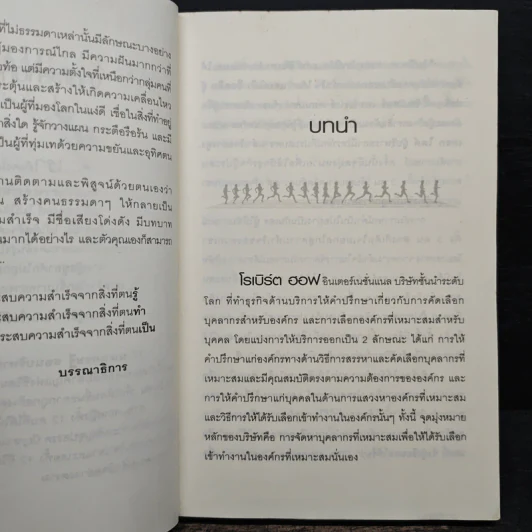 ที่ไม่ธรรมดาเหล่านั้นมีลักษณะบางอย่าง
มองการณ์ไกล มีความฝันมากกว่าที่
ท้อ แต่มีความตั้งใจที่เหนือกว่ากลุ่มคนที่
ระตุ้นและสร้างให้เกิดความเคลื่อนไหว
เป็นผู้ที่มองโลกในแง่ดี เชื่อในสิ่งที่ทำอยู่
ำสิ่งใด รู้จักวางแผน กระตือรือร้น และมี
เป็นผู้ที่ทุ่มเทด้วยความขยันและอุทิศตน
านติดตามและพิสูจน์ด้วยตนเองว่า
น สร้างคนธรรมดาๆ ให้กลายเป็น
สำเร็จ มีชื่อเสียงโด่งดัง มีบทบาท
ดมากได้อย่างไร และตัวคุณเองก็สามารถ
...
ะสบความสำเร็จจากสิ่งที่ตนรู้
ะสบความสำเร็จจากสิ่งที่ตนทำ
ระสบความสำเร็จจากสิ่งที่ตนเป็น
บรรณาธิการ
บทนำ
โรเบิร์ต ฮอฟ อินเตอร์เนชั่นแนล บริษัทชั้นนำระดับ
โลก ที่ทำธุรกิจด้านบริการให้คำปรึกษาเกี่ยวกับการคัดเลือก
บุคลากรสำหรับองค์กร และการเลือกองค์กรที่เหมาะสมสำหรับ
บุคคล โดยแบ่งการให้บริการออกเป็น 2 ลักษณะ ได้แก่ การให้
คำปรึกษาแก่องค์กรทางด้านวิธีการสรรหาและคัดเลือกบุคลากรที่
เหมาะสมและมีคุณสมบัติตรงตามความต้องการขององค์กร และ
การให้คำปรึกษาแก่บุคคลในด้านการแสวงหาองค์กรที่เหมาะสม
และวิธีการให้ได้รับเลือกเข้าทำงานในองค์กรนั้นๆ ทั้งนี้ จุดมุ่งหมาย
หลักของบริษัทคือ การจัดหาบุคลากรที่เหมาะสมเพื่อให้ได้รับเลือก
เข้าทำงานในองค์กรที่เหมาะสมนั่นเอง